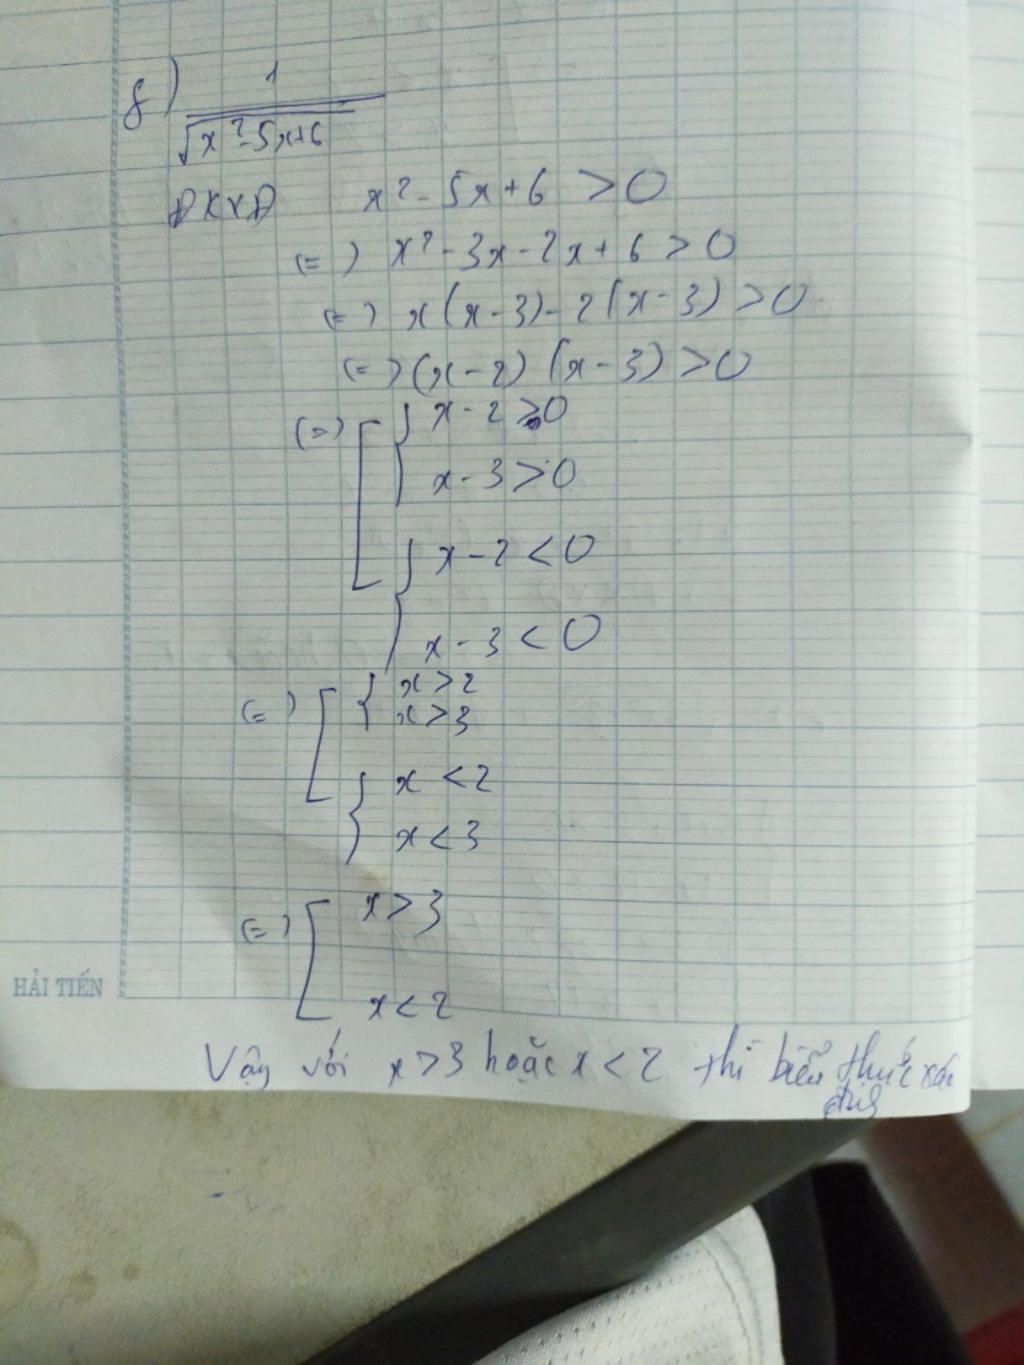 8) 1
√x²-5x+6
ĐKXĐ x²-5x+6 >0
(=) x²-3x-2x+6>0
(=) x(x-3)-2(x-3)>0
(=) (x-2)(x-3)>0
(=) [ { x-2>0
x-3>0
{ x-2<0
x-3<0
(=) [ { x>2
x>3
{ x<2
x<3
(=) [ x>3
x<2
HẢI TIẾN
Vậy với x>3 hoặc x<2 thì biểu thức xác
định